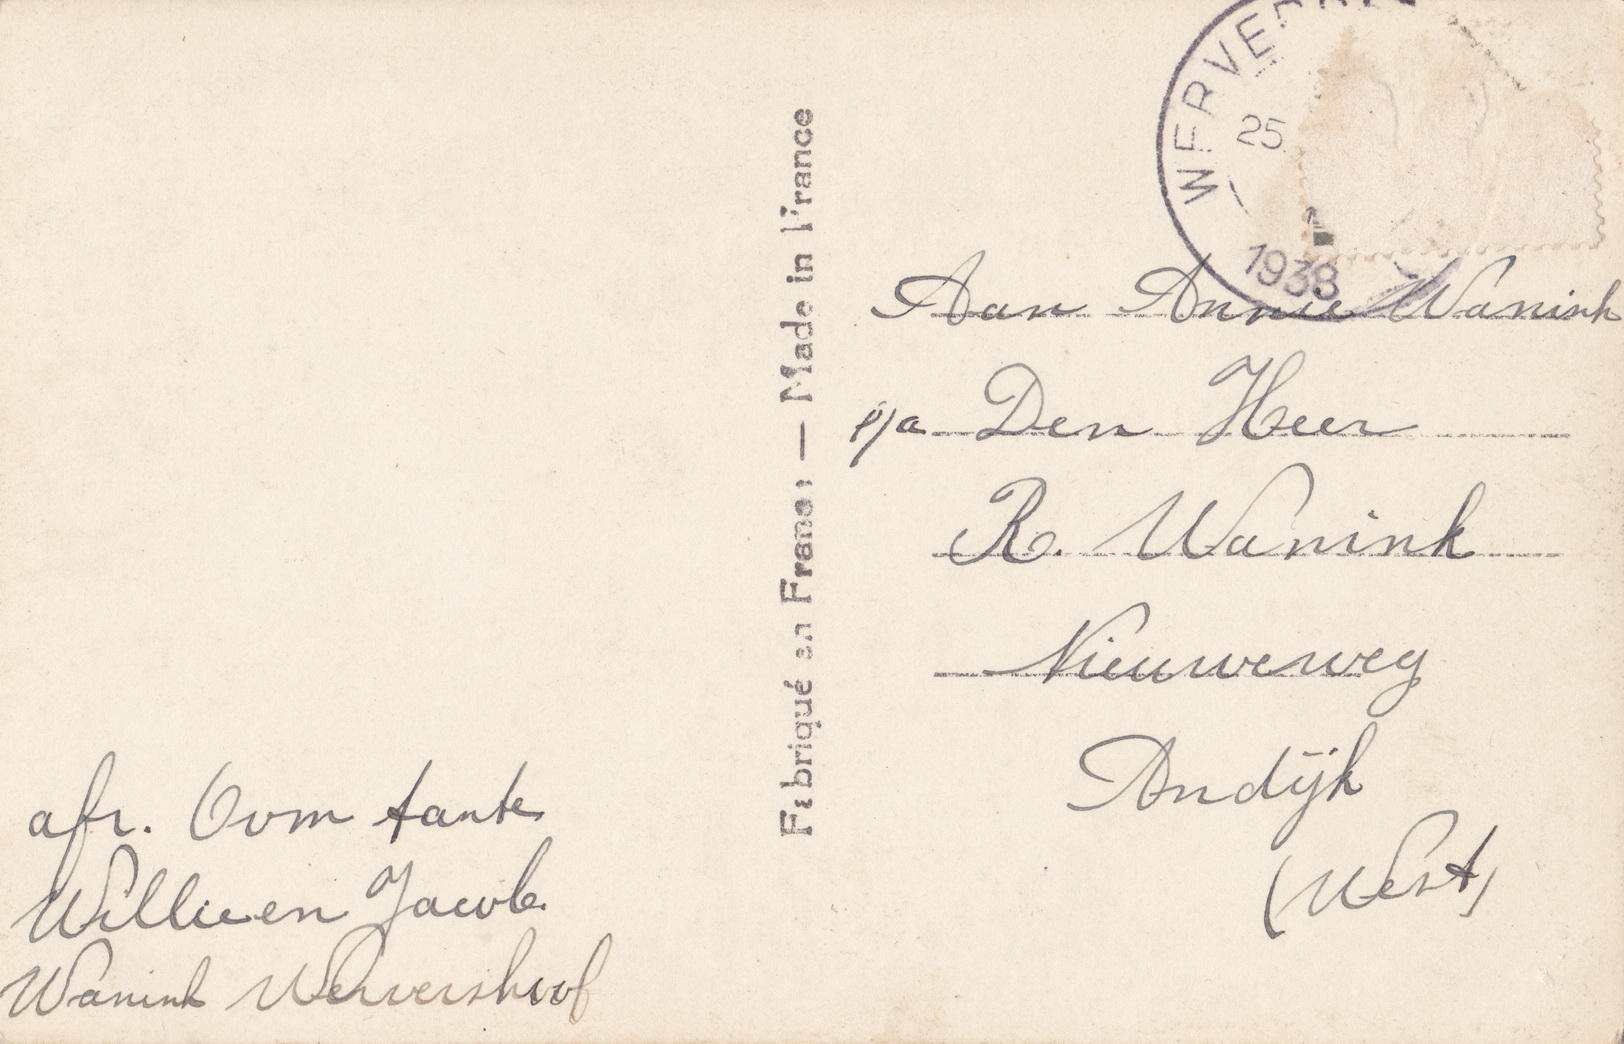 WERVER
25
1938
Aan Annie Wanink
p/a Den Heer
R. Wanink
Nieuweweg
Andijk
(West)
Fabriqué en France : — Made in France
afz. Oom tante
Willie en Jacob
Wanink Wervershoof